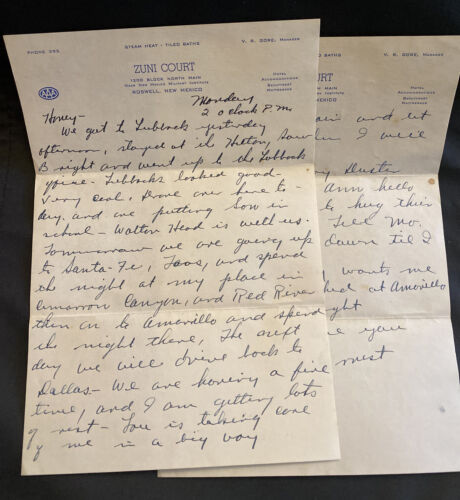 PHONE 595
STEAM HEAT - TILED BATHS
V. R. GORE, MANAGER
ZUNI COURT
1200 BLOCK NORTH MAIN
NEAR NEW MEXICO MILITARY INSTITUTE
ROSWELL, NEW MEXICO
HOTEL
ACCOMMODATIONS
BEAUTYREST
MATTRESSES
Monday
2 o'clock P.M.
Honey-
We got to Lubbock yesterday
afternoon, stayed at the Hilton, saw
B right and went up to the Lubbock
office - Lubbock looked good -
Very cool, Drove over here to-
day. and are putting Son in
school - Walton Head is with us.
Tommorrow we are going up
to Santa-Fe, Taos, and spend
the night at my place in
Cimarron Canyon, and Red River
then on to Amarillo and spend
the night there, The next
day we will drive back to
Dallas - We are having a fine
time, and I am getting lots
of rest - Lou is taking care
of me in a big way
BATHS
V. R. GORE, MANAGER
URT
MAIN
INSTITUTE
MEXICO
HOTEL
ACCOMMODATIONS
BEAUTYREST
MATTRESSES
and let
I will
Duster
Ann hello
to hug their
Tell Mo.
down til I
wants me
at Amarillo
night
you
rest